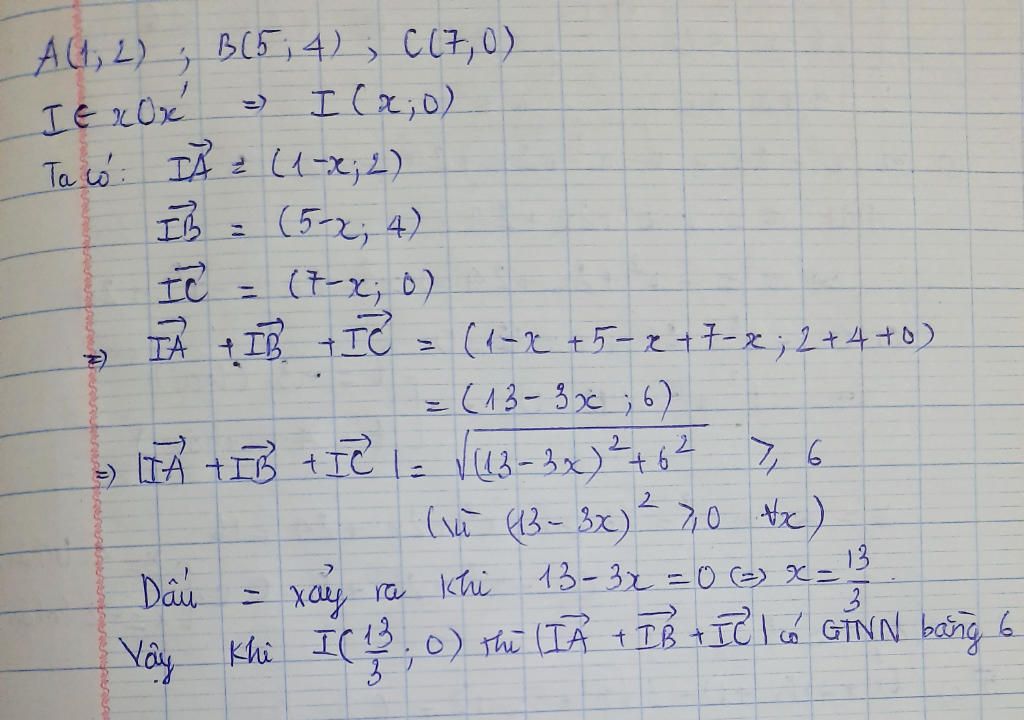 A(1,2) ; B(5;4) ; C(7,0)
I ∈ xOx' => I(x;0)
Ta có: IA⃗ = (1-x;2)
IB⃗ = (5-x; 4)
IC⃗ = (7-x; 0)
=> IA⃗ + IB⃗ + IC⃗ = (1-x+5-x+7-x; 2+4+0)
= (13-3x ; 6)
=> |IA⃗ + IB⃗ + IC⃗| = √((13-3x)² + 6²) ⩾ 6
(vì (13-3x)² ⩾ 0 ∀x)
Dấu = xảy ra khi 13-3x = 0 <=> x = 13/3.
Vậy khi I(13/3; 0) thì |IA⃗ + IB⃗ + IC⃗| có GTNN bằng 6